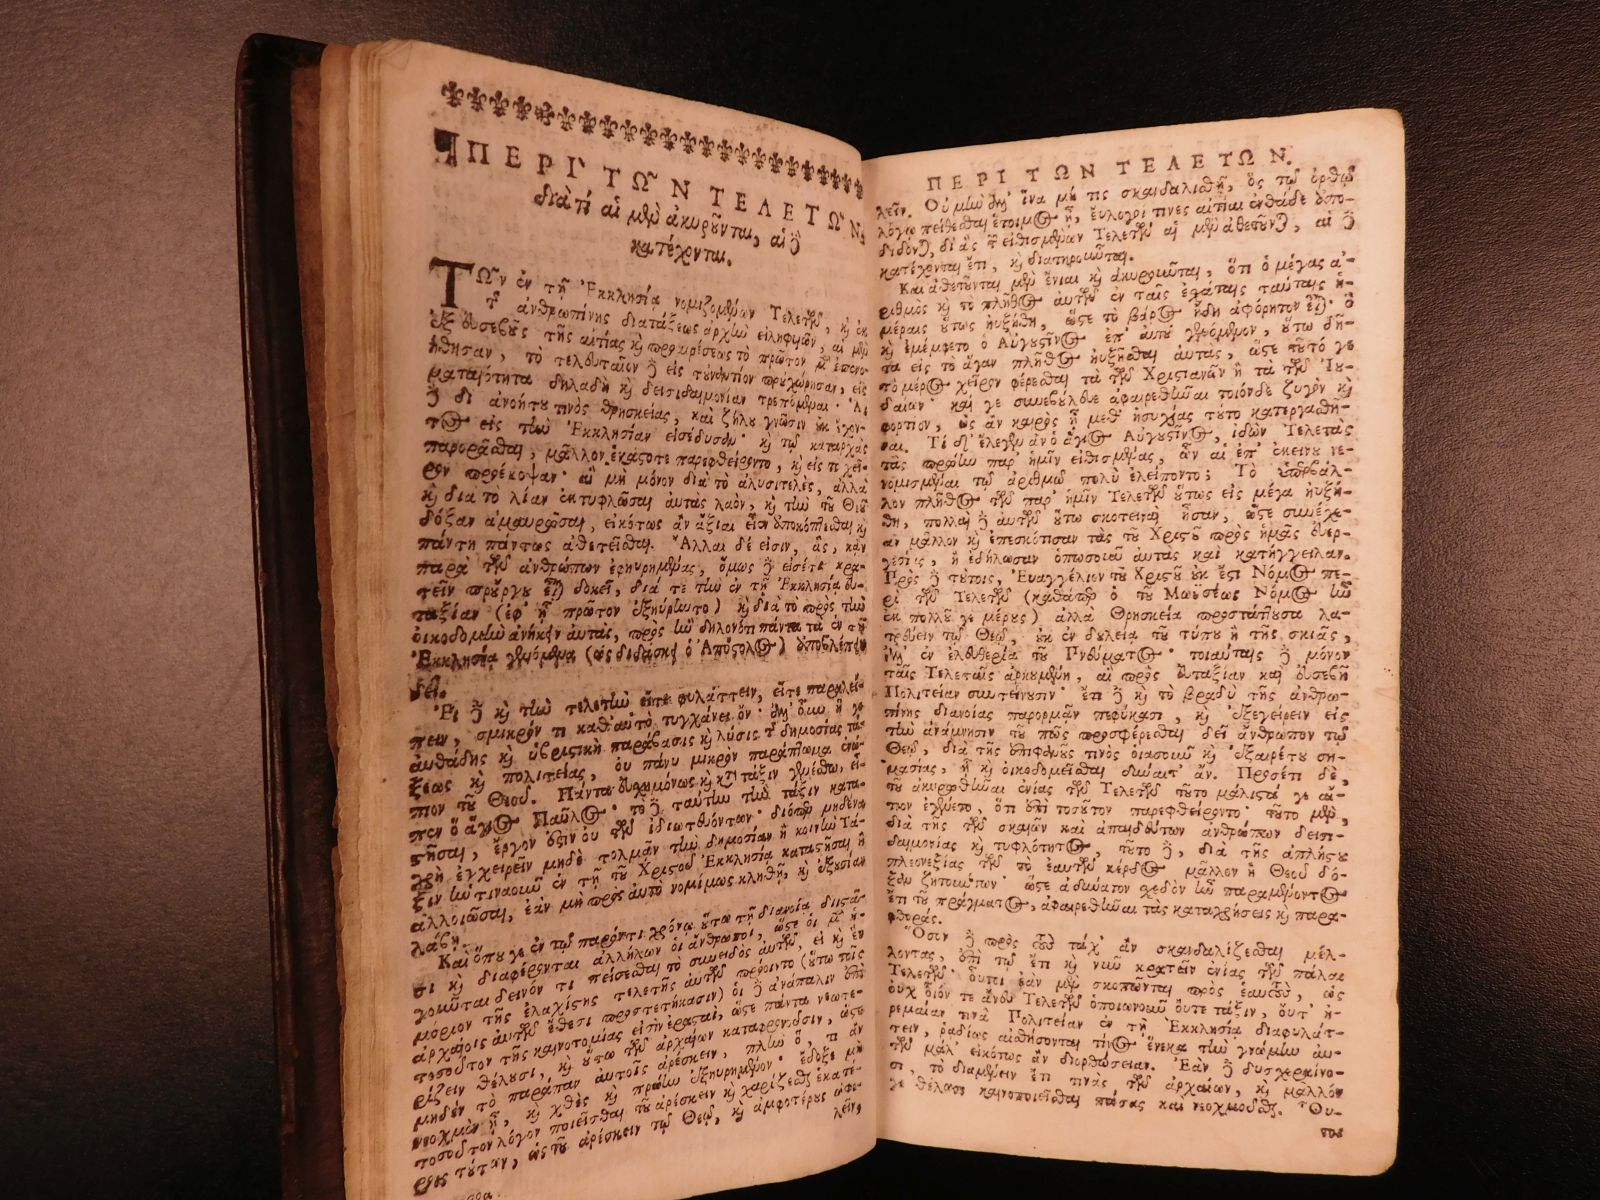 ΠΕΡΙ ΤΩ͂Ν ΤΕΛΕΤΩ͂Ν,
διὰ τί αἱ μὲν ἀκυροῦνται, αἱ δὲ
κατέχονται.
ΤΩ͂ν ἐν τῇ Ἐκκλησίᾳ νομιζομένων Τελετῶν, καὶ ἐκ
τῆς ἀνθρωπίνης διατάξεως ἀρχὴν εἰληφυιῶν, αἱ μὲν
ἐξ εὐσεβοῦς τῆς αἰτίας καὶ προαιρέσεως τὸ πρῶτον μὲν ἐπενο-
ήθησαν, τὸ τελευταῖον δὲ εἰς τὐναντίον προὐχώρησαν, εἰς
ματαιότητα δηλαδὴ καὶ δεισιδαιμονίαν τρεπόμεναι· Αἱ
δὲ δι' ἀνοήτου τινὸς θρησκείας, καὶ ζήλου γνῶσιν οὐκ ἔχον-
τος εἰς τὴν Ἐκκλησίαν εἰσέδυσαν· καὶ τῷ καταρχὰς
παρορᾶσθαι, μᾶλλον ἑκάστοτε παρεφθείροντο, καὶ εἰς τι χεῖ-
ρον προέκοψαν· αἳ μὴ μόνον διὰ τὸ ἀλυσιτελὲς, ἀλλὰ
καὶ διὰ τὸ λίαν ἐκτυφλῶσαι αὐτὰς λαὸν, καὶ τὴν τοῦ Θεοῦ
δόξαν ἀμαυρῶσαι, εἰκότως ἂν ἄξιαι εἶεν ὑποκόπτεσθαι καὶ
πάντῃ πάντως ἀθετεῖσθαι. Ἄλλαι δέ εἰσιν, ἃς, κἂν
παρὰ τῶν ἀνθρώπων ἐφηυρημένας, ὅμως δὲ εἰσέτι κρα-
τεῖν προὔργου εἶναι δοκεῖ, διά τε τὴν ἐν τῇ Ἐκκλησίᾳ εὐ-
ταξίαν (ἐφ' ᾗ πρῶτον ἐξηύρηντο) καὶ διὰ τὸ πρὸς τὴν
οἰκοδομὴν ἀνήκειν αὐτὰς, πρὸς ἣν δηλονότι πάντα τὰ ἐν τῇ
Ἐκκλησίᾳ γενόμενα (ὡς διδάσκει ὁ Ἀπόστολος) ἀποβλέπειν
δεῖ.
Εἰ δὲ καὶ τὴν τελετὴν εἴτε φυλάττειν, εἴτε παραλεί-
πειν, σμικρόν τι καθ' αὑτὸ τυγχάνει ὄν· ἀλλ' ὅμως ἥ γε
αὐθάδης καὶ ὑβριστικὴ παράβασις καὶ λύσις τῆς δημοσίας τά-
ξεως καὶ πολιτείας, οὐ πάνυ μικρὸν παράπτωμα ἐνώ-
πιον τοῦ Θεοῦ. Πάντα εὐσχημόνως καὶ κατὰ τάξιν γενέσθω, εἶ-
πεν ὁ ἅγιος Παῦλος· τὸ δὲ ταύτην τὴν τάξιν κατα-
στῆσαι, ἔργον ἐστὶν οὐ τῶν ἰδιωτευόντων· διόπερ μηδένα
χρὴ ἐγχειρεῖν μηδὲ τολμᾶν τὴν δημοσίαν ἢ κοινὴν Τά-
ξιν ἡντιναοῦν ἐν τῇ τοῦ Χριστοῦ Ἐκκλησίᾳ καταστῆσαι ἢ
ἀλλοιῶσαι, ἐὰν μὴ πρὸς αὐτὸ νομίμως κληθῇ, καὶ ἐξουσίαν
λάβῃ.
Καὶ ὅπου γε ἐν τῷ παρόντι χρόνῳ οὕτω τῇ διανοίᾳ διϊστᾶ-
σι καὶ διαφέρονται ἀλλήλων οἱ ἄνθρωποι, ὥστε οἱ μὲν ἡ-
γοῦνται δεινόν τι πείσεσθαι τὸ συνειδὸς αὐτῶν, εἰ καὶ ἓν
μόριον τῆς ἐλαχίστης τελετῆς αὐτῶν προοῖντο (οὕτω τοῖς
ἀρχαίοις αὐτῶν ἔθεσι προστετήκασιν) οἱ δὲ ἀνάπαλιν ἐπὶ
τοσοῦτον τῆς καινοτομίας εἰσὶν ἐρασταὶ, ὥστε πάντα νεωτε-
ρίζειν θέλουσι, καὶ οὕτω τῶν ἀρχαίων καταφρονοῦσιν, ὥστε
μηδὲν τὸ παράπαν αὐτοῖς ἀρέσκειν, πλὴν ὅ, τι ἂν
νεοχμὸν ᾖ, καὶ χθὲς καὶ πρώην ἐξηυρημένον· ἔδοξε μὴ
τοσοῦτον λόγον ποιεῖσθαι τοῦ ἀρέσκειν καὶ χαρίζεσθαι ἑκατέ-
ροις τούτων, ὡς τοῦ ἀρέσκειν τῷ Θεῷ, καὶ ἀμφοτέρους ὠφε-
λεῖν.
ΠΕΡΙ ΤΩΝ ΤΕΛΕΤΩΝ.
λεῖν. Οὐ μὴν ἀλλ' ἵνα μή τις σκανδαλισθῇ, ὃς τῷ ὀρθῷ
λόγῳ πείθεσθαι ἕτοιμος ᾖ, εὔλογοί τινες αἰτίαι ἐνθάδε ἀπο-
διδόνται, δι' ἃς τῶν εἰθισμένων Τελετῶν αἱ μὲν ἀθετοῦνται, αἱ δὲ
κατέχονται ἔτι, καὶ διατηροῦνται.
Καὶ ἀθετοῦνται μὲν ἔνιαι καὶ ἀκυροῦνται, ὅτι ὁ μέγας ἀ-
ριθμὸς καὶ τὸ πλῆθος αὐτῶν ἐν ταῖς ἐσχάταις ταύταις ἡ-
μέραις οὕτως ηὐξήθη, ὥστε τὸ βάρος ἤδη ἀφόρητον εἶναι· ὃ
καὶ ἐμέμφετο ὁ Αὐγουστῖνος ἐπ' αὐτοῦ γενόμενον, οὕτω δῆ-
τα εἰς τὸ ἄγαν πλῆθος ηὐξῆσθαι αὐτὰς, ὥστε τοῦτό γε
τὸ μέρος χεῖρον φέρεσθαι τὰ τῶν Χριστιανῶν ἢ τὰ τῶν Ἰου-
δαίων· καί γε συνεβούλευε ἀφαιρεθῆναι τοιόνδε ζυγὸν καὶ
φορτίον, ὡς ἂν καιρὸς ᾖ μεθ' ἡσυχίας τοῦτο κατεργασθῆ-
ναι. Τί δ' ἔλεγεν ἂν ὁ ἅγιος Αὐγουστῖνος, ἰδὼν Τελετὰς
τὰς πρώην παρ' ἡμῖν εἰθισμένας, ὧν αἱ ἐπ' ἐκείνου νε-
νομισμέναι τῷ ἀριθμῷ πολὺ ἐλείποντο; Τὸ ὑπερβάλ-
λον πλῆθος τῶν παρ' ἡμῖν Τελετῶν οὕτως εἰς μέγα ηὐξή-
θη, πολλαὶ δὲ αὐτῶν οὕτω σκοτειναὶ ἦσαν, ὥστε συνέχε-
αν μᾶλλον καὶ ἐπεσκότισαν τὰς τοῦ Χριστοῦ πρὸς ἡμᾶς εὐερ-
γεσίας, ἢ ἐδήλωσαν ὁπωσοῦν αὐτὰς καὶ κατήγγειλαν.
Πρὸς δὲ τούτοις, Εὐαγγέλιον τοῦ Χριστοῦ οὐκ ἔστι Νόμος πε-
ρὶ τῶν Τελετῶν (καθάπερ ὁ τοῦ Μωϋσέως Νόμος ἦν
ἐκ πολλοῦ γε μέρους) ἀλλὰ Θρησκεία προστάττουσα λα-
τρεύειν τῷ Θεῷ, οὐκ ἐν δουλείᾳ τοῦ τύπου ἢ τῆς σκιᾶς,
ἀλλ' ἐν ἐλευθερίᾳ τοῦ Πνεύματος· τοιαύταις δὲ μόνον
ταῖς Τελεταῖς ἀρκουμένη, αἳ πρὸς εὐταξίαν καὶ εὐσεβῆ
Πολιτείαν συντείνουσιν· ἔτι δὲ καὶ τὸ βραδὺ τῆς ἀνθρω-
πίνης διανοίας παρορμᾶν πεφύκασι, καὶ ἐξεγείρειν εἰς
τὴν ἀνάμνησιν τοῦ πῶς προσφέρεσθαι δεῖ ἄνθρωπον τῷ
Θεῷ, διὰ τῆς ἐπιφανοῦς τινὸς ὁιασοῦν καὶ ἐξαιρέτου ση-
μασίας, ᾗ καὶ οἰκοδομεῖσθαι δύναιτ' ἄν. Προσέτι δὲ,
τοῦ ἀκυρωθῆναι ἐνίας τῶν Τελετῶν τοῦτο μάλιστά γε αἴ-
τιον ἐγένετο, ὅτι ἐπὶ τοσοῦτον παρεφθείροντο· τοῦτο μὲν,
διὰ τῆς τῶν σκαιῶν καὶ ἀπαιδεύτων ἀνθρώπων δεισι-
δαιμονίας καὶ τυφλότητος, τοῦτο δὲ, διὰ τῆς ἀπλήστου
πλεονεξίας τῶν τὸ ἑαυτῶν κέρδος μᾶλλον ἢ Θεοῦ δό-
ξαν ζητούντων· ὥστε ἀδύνατον σχεδὸν ἦν παραμένοντος
ἔτι τοῦ πράγματος, ἀφαιρεθῆναι τὰς καταχρήσεις καὶ παρα-
φθοράς.
Ὅσον δὲ πρὸς τοὺς τάχ' ἂν σκανδαλίζεσθαι μέλ-
λοντας, ἐπὶ τῷ ἔτι καὶ νῦν κρατεῖν ἐνίας τῶν πάλαι
Τελετῶν· οὗτοι ἐὰν μὲν σκοπῶνται πρὸς ἑαυτοὺς, ὡς
οὐχ οἷόν τε ἄνευ Τελετῶν ὁποιωνοῦν οὔτε τάξιν, οὔτ' ἠ-
ρεμαίαν τινὰ Πολιτείαν ἐν τῇ Ἐκκλησίᾳ διαφυλάτ-
τειν, ῥᾳδίως αἰσθήσονται τίνος ἕνεκα τὴν γνώμην αὐ-
τῶν μάλ' εἰκότως ἂν διορθώσειαν. Ἐὰν δὲ δυσχεραίνω-
σι, τὸ διαμένειν ἔτι τινὰς τῶν ἀρχαίων, καὶ μᾶλλόν
γε θέλωσι καινοποιεῖσθαι πάσας καὶ νεοχμοῦσθαι. Οὕ-
τοι